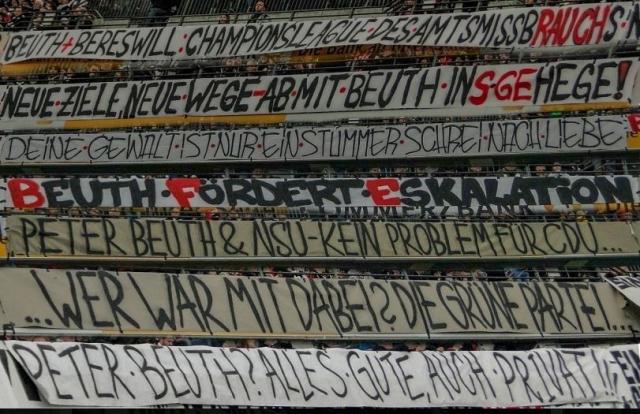 BEUTH+BERESWILL:CHAMPIONSLEAGUE DES AMTSMISSBRAUCHS
Die Bank
NEUE·ZIELE, NEUE·WEGE-AB·MIT·BEUTH·IN S-GEHEGE!
DEINE·GEWALT·IST·NUR·EIN STUMMER·SCHREI·NACH·LIEBE
BEUTH·FÖRDERT·ESKALATION
PETER BEUTH & NSU-KEIN PROBLEM FÜR CDU...
...WER WAR MIT DABEI? DIE GRÜNE PARTEI...
PETER·BEUTH? ALLES·GUTE, AUCH·PRIVAT